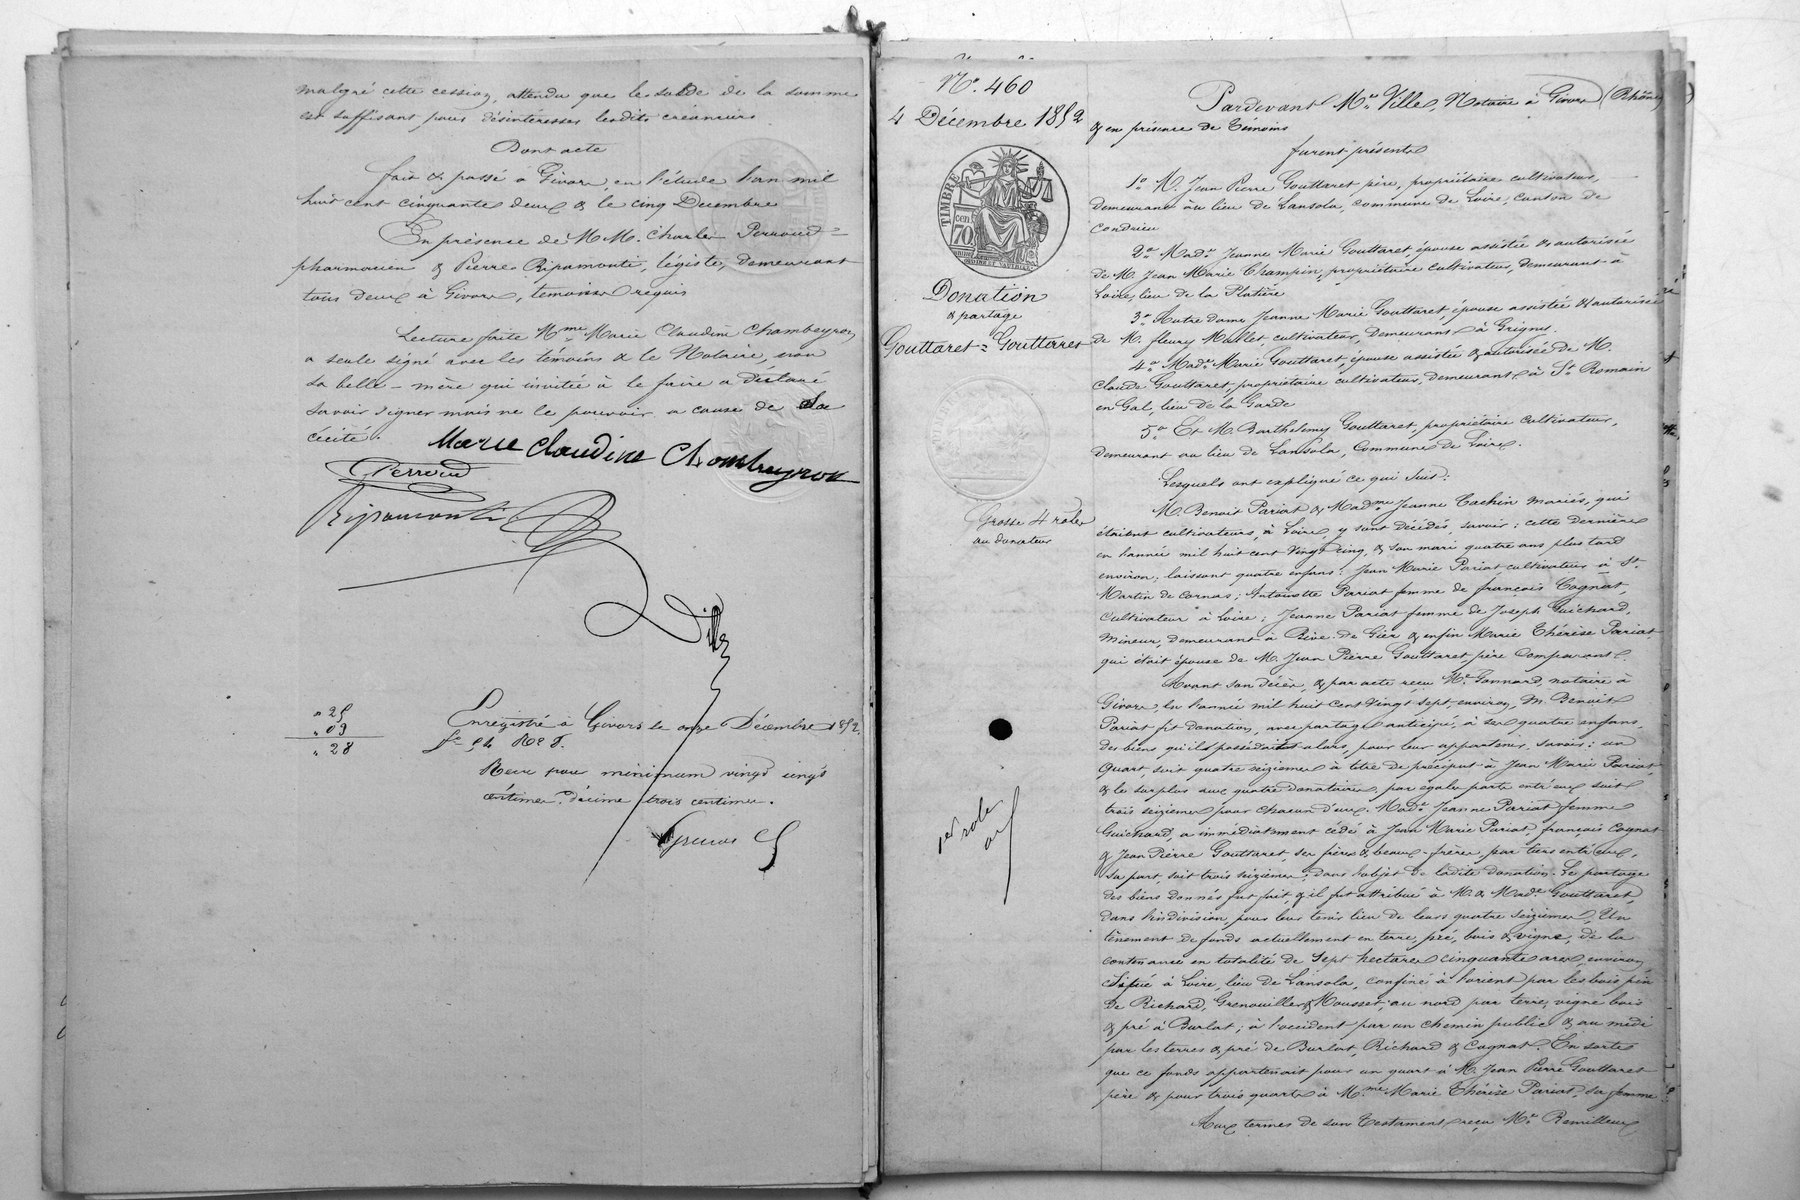 malgré cette cession, attendu que le solde de la somme
est suffisant pour désintéresser lesdits créanciers
Dont acte
fait & passé à Givors, en l'étude l'an mil
huit cent cinquante deux & le cinq Décembre
En présence de M.M. Charles Perroud =
pharmacien & Pierre Ripamonti, légiste, demeurant
tous deux à Givors, témoins requis
Lecture faite Mme Marie Claudine Chambeyron
a seule signé avec les témoins & le Notaire, non
sa belle-mère qui invitée à le faire a déclaré
savoir signer mais ne le pouvoir a cause de sa
cécité.
Marie Claudine Chambeyron
Perroud
Ripamonti
Ville
" 25
" 03
" 28
Enregistré à Givors le onze Décembre 1852,
fo
Reçu pour minimum vingt cinq
centimes, décime trois centimes.
No. 460
4 Décembre 1852
TIMBRE
70 cen
Donation
& partage
Gouttaret = Gouttaret
Grosse 4 rôles
au donateur
1er role
Pardevant Me Ville, Notaire à Givors (Rhône)
& en présence de témoins
furent présents
1o M. Jean Pierre Gouttaret père, propriétaire cultivateur,
demeurant au lieu de Lansola, commune de Loire, canton de
Condrieu
2o Made Jeanne Marie Gouttaret, épouse assistée & autorisée
de M. Jean Marie Champin, propriétaire cultivateur, demeurant à
Loire, lieu de la Platière
3o Autre dame Jeanne Marie Gouttaret, épouse assistée & autorisée
de M. fleury Mallet, cultivateur, demeurant à Grigny.
4o Made Marie Gouttaret, épouse assistée & autorisée de M.
Claude Gouttaret, propriétaire cultivateur, demeurant à St Romain
en Gal, lieu de la Garde
5o Et M. Barthélemy Gouttaret, propriétaire cultivateur,
demeurant au lieu de Lansola, Commune de Loire.
Lesquels ont expliqué ce qui suit:
M. Benoit Pariat & Madme Jeanne Cachin mariés, qui
étaient cultivateurs, à Loire, y sont décédés, savoir: cette dernière
en l'année mil huit cent vingt cinq, & son mari quatre ans plus tard
environ, laissant quatre enfans: Jean Marie Pariat cultivateur à St
Martin de Cornas; Antoinette Pariat femme de françois Cognat,
cultivateur à Loire; Jeanne Pariat femme de Joseph Guichard,
mineur, demeurant à Rive de Gier & enfin Marie Thérèse Pariat
qui était épouse de M. Jean Pierre Gouttaret père comparant.
Avant son décès, & par acte reçu Me Gonnard notaire à
Givors, en l'année mil huit cent vingt sept environ, M. Benoit
Pariat fit donation, avec partage anticipé, à ses quatre enfans,
des biens qu'il possédait alors, pour leur appartenir, savoir: un
quart, soit quatre seizièmes à titre de préciput à Jean Marie Pariat,
& le surplus aux quatre donataires, par égale parts entr'eux soit
trois seizièmes pour chacun d'eux. Made Jeanne Pariat femme
Guichard, a immédiatement cédé à Jean Marie Pariat, françois Cognat
& Jean Pierre Gouttaret, ses frère & beaux-frères, par tiers entr'eux,
sa part, soit trois seizièmes, dans l'objet de ladite donation. Le partage
des biens donnés fut fait, & il fut attribué à M. & Made Gouttaret,
dans l'indivision, pour leur tenir lieu de leurs quatre seizièmes, Un
tènement de fonds actuellement en terre, pré, bois & vigne, de la
contenance en totalité de sept hectares cinquante ares, environ
situé à Loire, lieu de Lansola, confiné à l'orient par les bois pin
de Richard, Grenouiller & Mousset; au nord par terre, vigne bois
& pré à Burlat; à l'occident par un chemin public & au midi
par les terres & pré de Burlat, Richard & Cognat. En sorte
que ce fonds appartenait pour un quart à M. Jean Pierre Gouttaret
père & pour trois quarts à Mme Marie Thérèse Pariat, sa femme
Aux termes de son testament reçu Me Remilleux